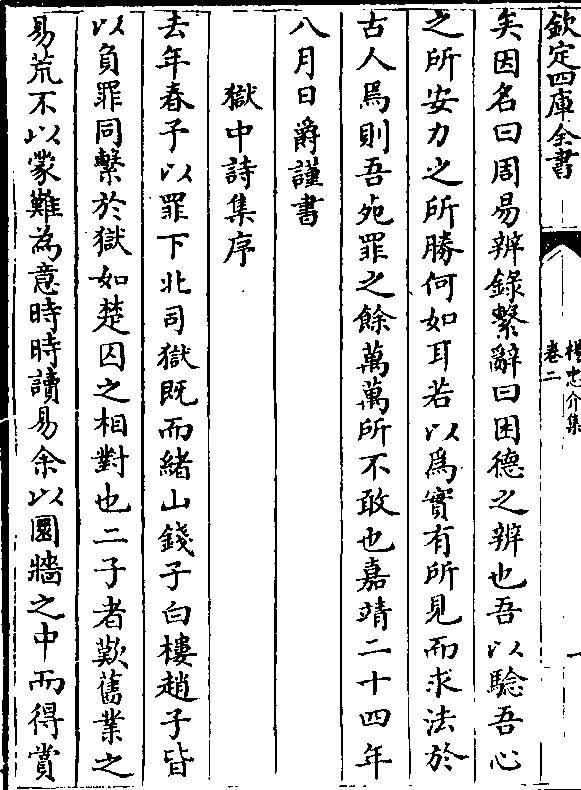 欽定四庫全書
楊忠介集
卷二
矣因名曰周易辨錄繫辭曰困德之辨也吾以驗吾心
之所安力之所勝何如耳若以爲實有所見而求法於
古人焉則吾死罪之餘萬萬所不敢也嘉靖二十四年
八月日爵謹書
獄中詩集序
去年春予以罪下北司獄既而緒山錢子白樓趙子皆
以負罪同繫於獄如楚囚之相對也二子者歎舊業之
易荒不以蒙難為意時時讀易余以圜牆之中而得賞